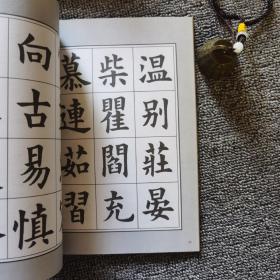 温别莊晏
柴瞿閻充
慕連茹習
向古易慎